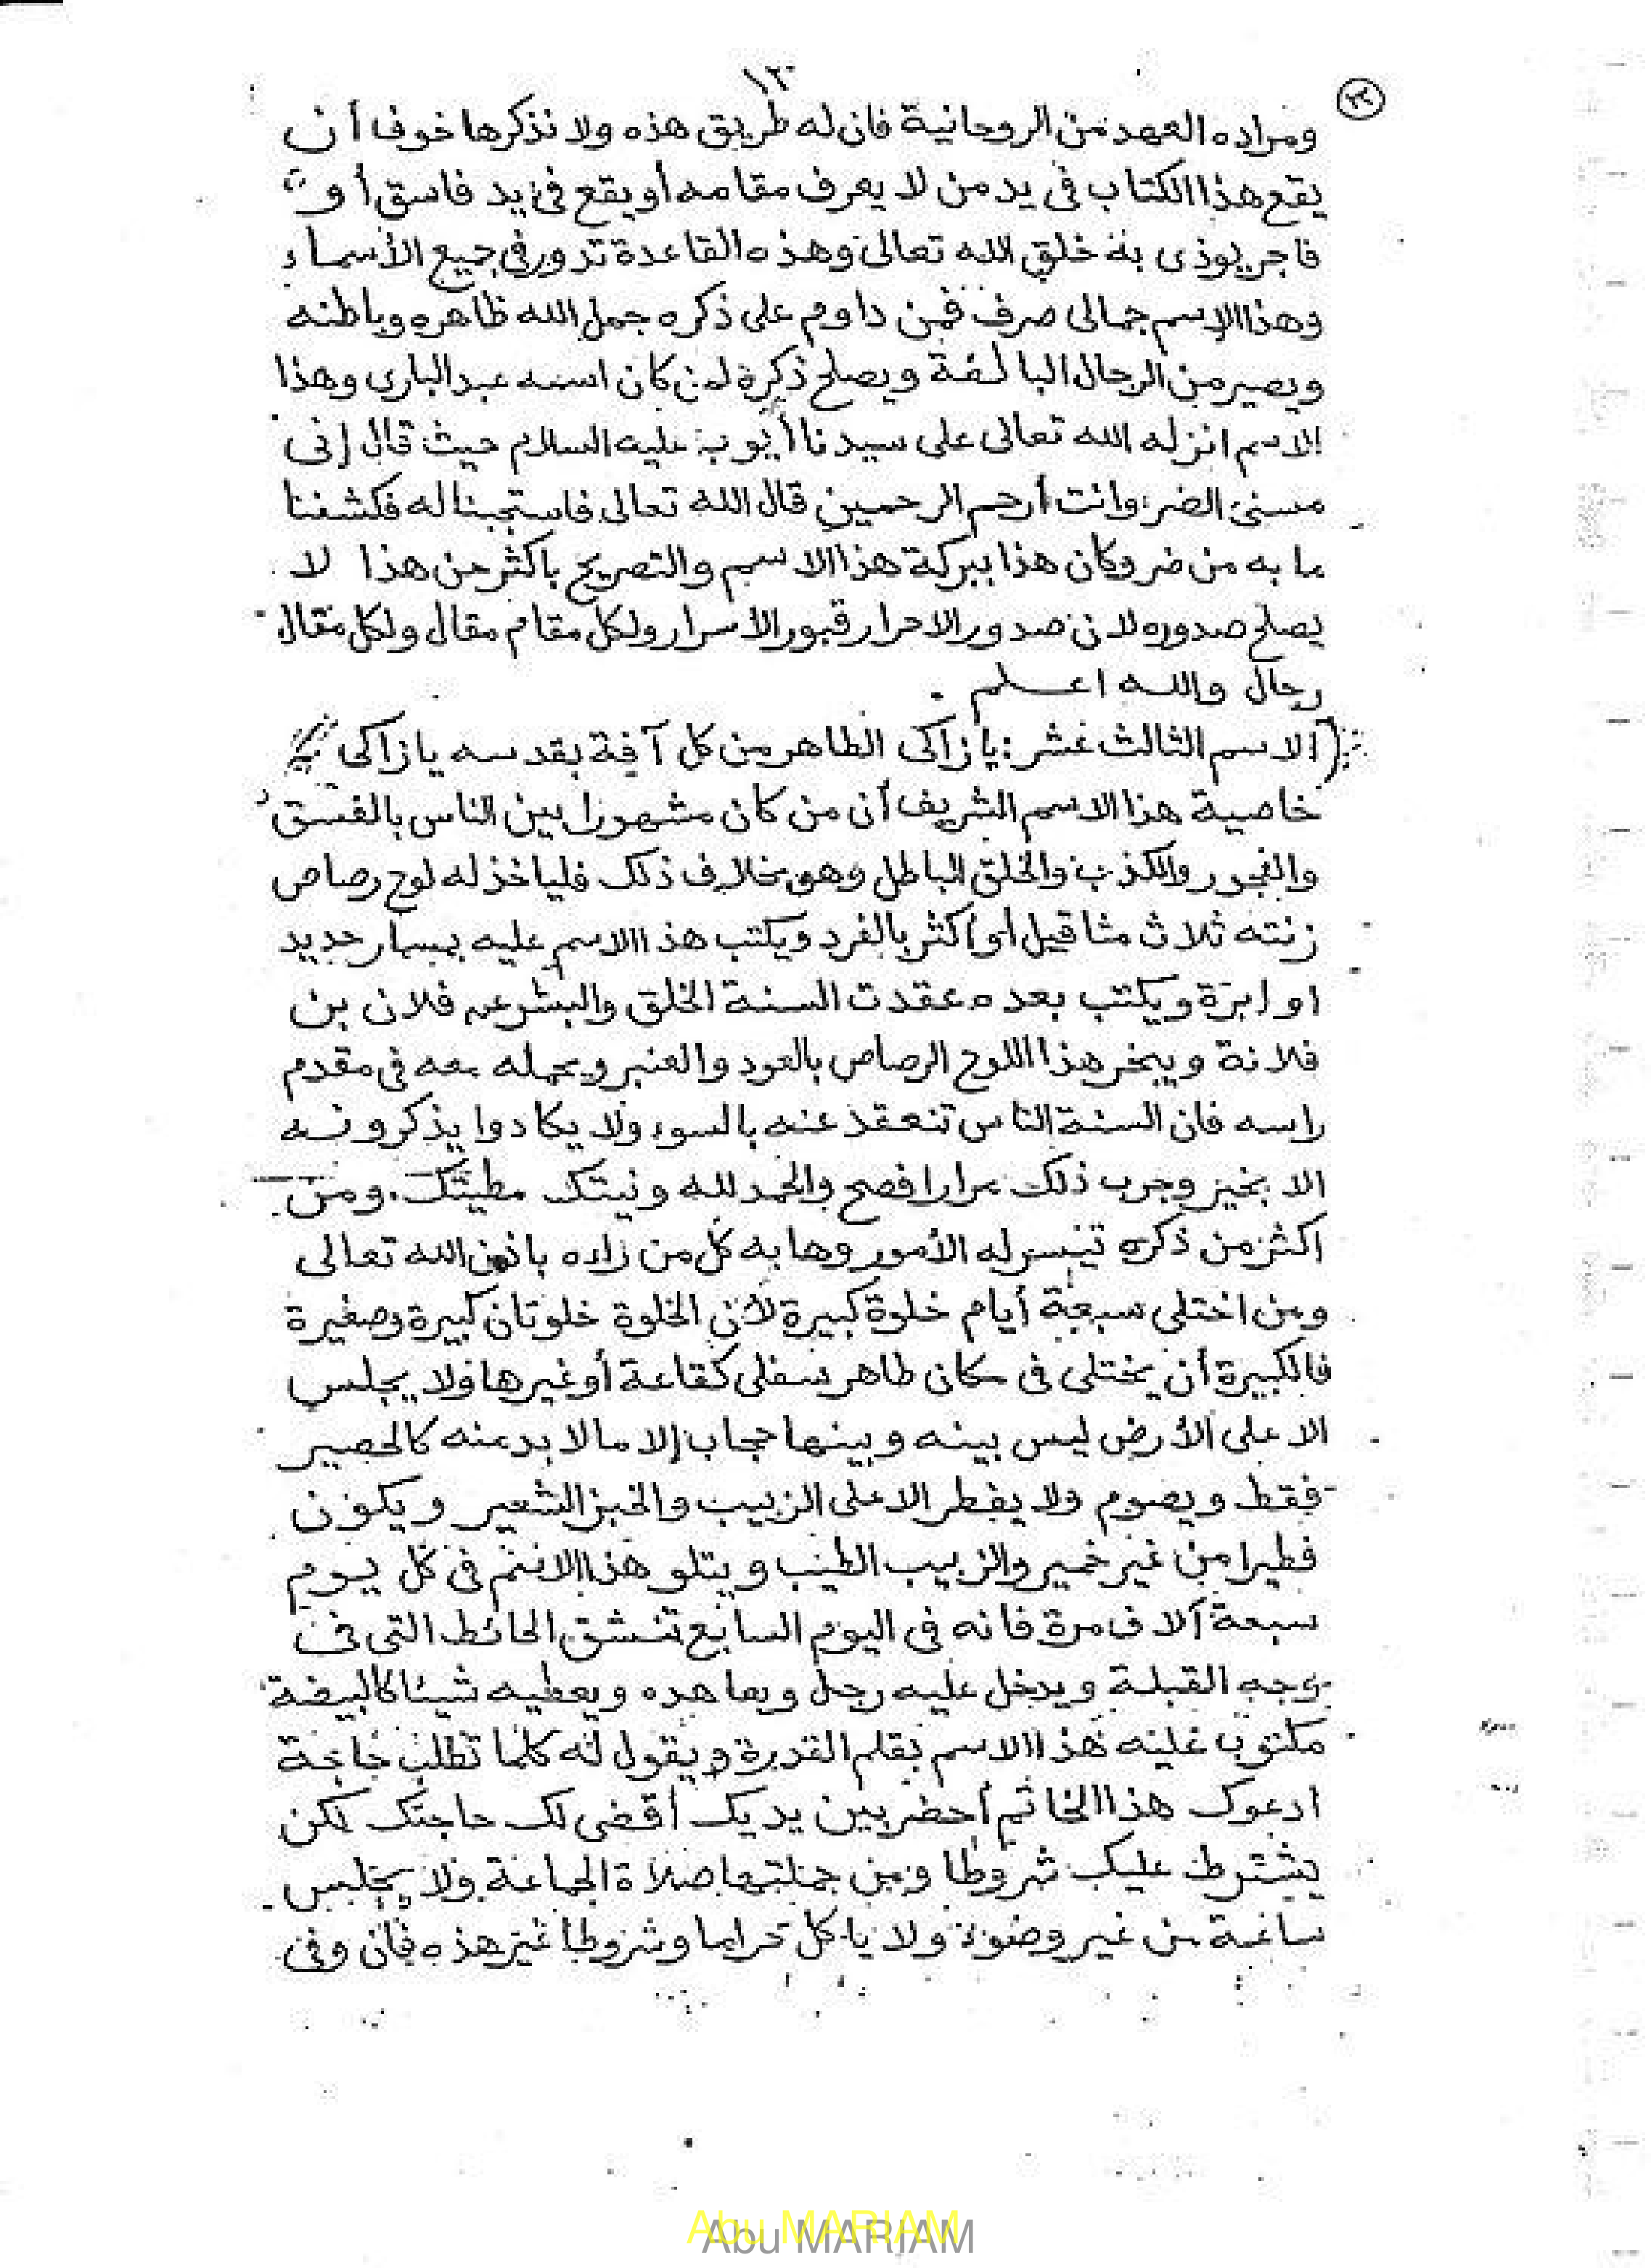 ١٣
ومراده العهد من الروحانية فان له طريق هذه ولا نذكرها خوف أن
يقع هذا الكتاب فى يد من لا يعرف مقامه أو يقع فى يد فاسق أو
فاجر يوذى به خلق الله تعالى وهذه القاعدة تدور فى جميع الأسماء
وهذا الاسم جمالى صرف فمن داوم على ذكره جمل الله ظاهره وباطنه
ويصير من الرجال البالغة ويصلح ذكره لمن كان اسمه عبد البارى وهذا
الاسم انزله الله تعالى على سيدنا أيوب عليه السلام حيث قال إنى
مسنى الضر وانت أرحم الرحمين قال الله تعالى فاستجبنا له فكشفنا
ما به من ضر وكان هذا ببركة هذا الاسم والتصريح باكثر من هذا لا
يصلح صدوره لان صدور الاحرار قبور الأسرار ولكل مقام مقال ولكل مقال
رجال والله اعلم .
(الاسم الثالث عشر : يا زاكى الطاهر من كل آفة بقدسه يا زاكى
خاصية هذا الاسم الشريف أن من كان مشهورا بين الناس بالفسق
والفجور والكذب والخلق الباطل وهو بخلاف ذلك فلياخذ له لوح رصاص
زنته ثلاث مثاقيل أو أكثر بالفرد ويكتب هذا الاسم عليه بمسمار حديد
او ابرة ويكتب بعده عقدت السنة الخلق والبشر عن فلان بن
فلانة ويبخر هذا اللوح الرصاص بالعود والعنبر ويحمله معه فى مقدم
راسه فان السنة الناس تنعقد عنه بالسوء ولا يكادوا يذكرونه
الا بخير وجرب ذلك مرارا فصح والحمد لله ونيتك مطيتك . ومن
اكثر من ذكره تيسر له الأمور وهابه كل من راه باذن الله تعالى
ومن اختلى سبعة أيام خلوة كبيرة لأن الخلوة خلوتان كبيرة وصغيرة
فالكبيرة أن يختلى فى مكان طاهر سفلى كقاعة أو غيرها ولا يجلس
الا على الأرض ليس بينه وبينها حجاب إلا ما لا بد عنه كالحصير
فقط ويصوم ولا يفطر الا على الزبيب والخبز الشعير ويكون
فطيرا من غير خمير والزبيب الطيب ويتلو هذا الاسم فى كل يوم
سبعة آلاف مرة فانه فى اليوم السابع تنشق الحائط التى فى
وجه القبلة ويدخل عليه رجل ويعاهده ويعطيه شيئا كالبيضة
مكتوب عليه هذا الاسم بقلم القدرة ويقول له كلما تطلب حاجة
ادعوك هذا الخاتم أحضر بين يديك أقضى لك حاجتك لكن
يشترط عليك شروطا ومن جملتها صلاة الجماعة ولا يجلس
ساعة من غير وضوء ولا ياكل حراما وشروطا غير هذه فان وفى
Abu MARIAM